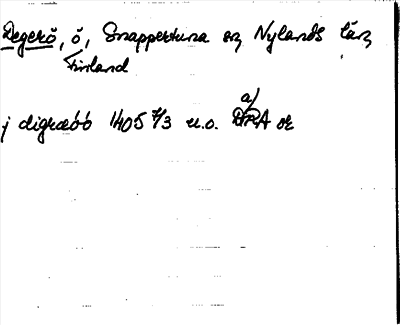 Degerö, ö, Snappertuna sn, Nylands län,
Finland
j digræóó 1405 7/3 u.o. a/ DRA or